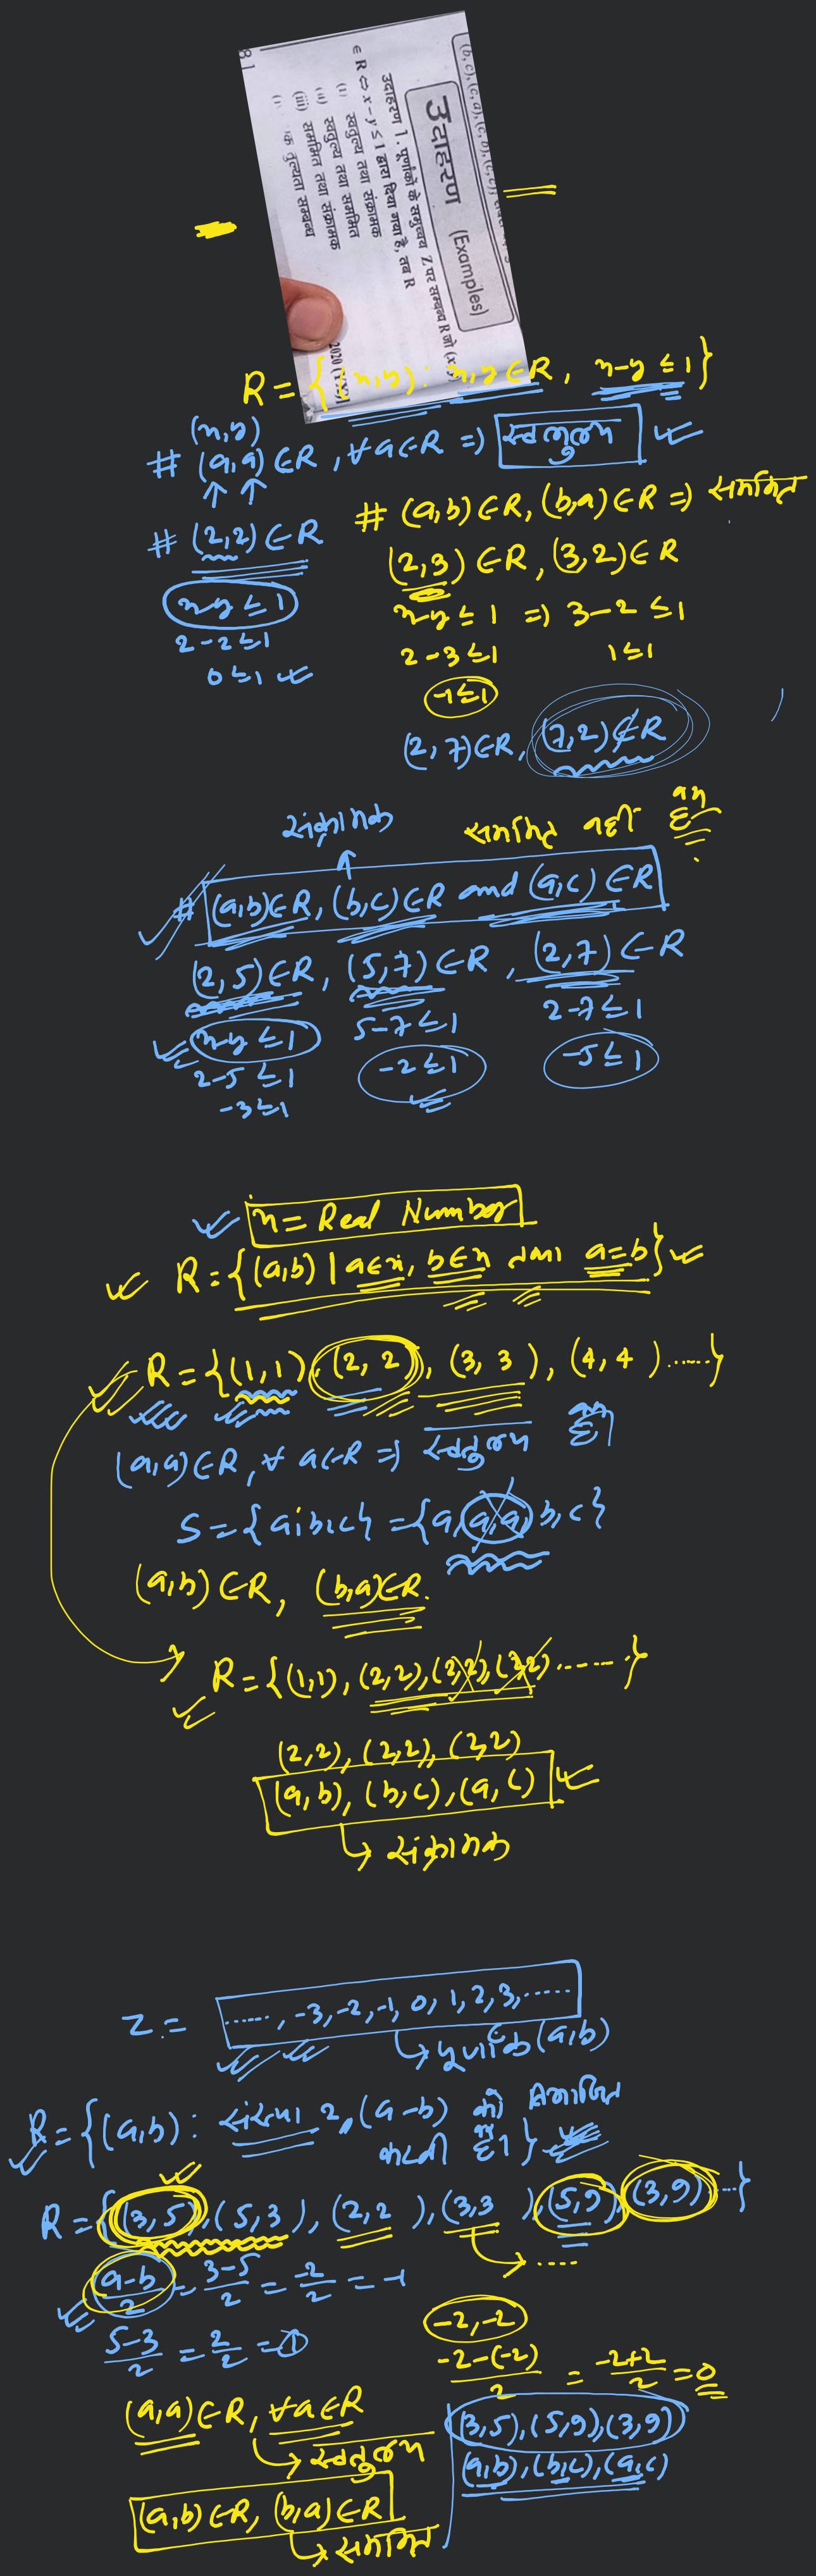 (b, c), (c, a), (c, b), (c, c),
उदाहरण (Examples)
उदाहरण 1. पूर्णांकों के समुच्चय Z पर सम्बन्ध R जो (x, y)
∈ R ⇔ x − y ≤ 1 द्वारा दिया गया है, तब R
(i) स्वतुल्य तथा संक्रामक
(ii) स्वतुल्य तथा सममित
(iii) सममित तथा संक्रामक
तुल्यता सम्बन्ध
2020
81
R = {(x,y) : x,y ∈ R, x-y ≤ 1}
(x,y)
# (a,a) ∈ R, ∀ a ∈ R => स्वतुल्य
# (2,2) ∈ R
x-y ≤ 1
2-2 ≤ 1
0 ≤ 1
# (a,b) ∈ R, (b,a) ∈ R => सममित
(2,3) ∈ R, (3,2) ∈ R
x-y ≤ 1 => 3-2 ≤ 1
2-3 ≤ 1 1 ≤ 1
-1 ≤ 1
(2,7) ∈ R, (7,2) ∉ R
संक्रामक सममित नहीं है
# (a,b) ∈ R, (b,c) ∈ R and (a,c) ∈ R
(2,5) ∈ R, (5,7) ∈ R, (2,7) ∈ R
x-y ≤ 1 5-7 ≤ 1 2-7 ≤ 1
2-5 ≤ 1 -2 ≤ 1 -5 ≤ 1
-3 ≤ 1
x = Real Number
R = {(a,b) | a ∈ x, b ∈ x तथा a = b}
R = {(1,1), (2,2), (3,3), (4,4) ......}
(a,a) ∈ R, ∀ a ∈ R => स्वतुल्य है
S = {a,b,c} = {a,a,a,b,c}
(a,b) ∈ R, (b,a) ∈ R.
R = {(1,1), (2,2), (2,2), (2,2) ......}
(2,2), (2,2), (2,2)
(a,b), (b,c), (a,c)
↳ संक्रामक
Z = ......, -3, -2, -1, 0, 1, 2, 3, .....
↳ पूर्णांक (a,b)
R = {(a,b) : संख्या 2, (a-b) को विभाजित
करती है।}
R = {(3,5), (5,3), (2,2), (3,3), (5,9), (3,9) ...}
a-b/2 = 3-5/2 = -2/2 = -1
5-3/2 = 2/2 = 1
-2,-2
-2-(-2)/2 = -2+2/2 = 0
(a,a) ∈ R, ∀ a ∈ R
↳ स्वतुल्य
(a,b) ∈ R, (b,a) ∈ R
↳ सममित
(3,5), (5,9), (3,9)
(a,b), (b,c), (a,c)